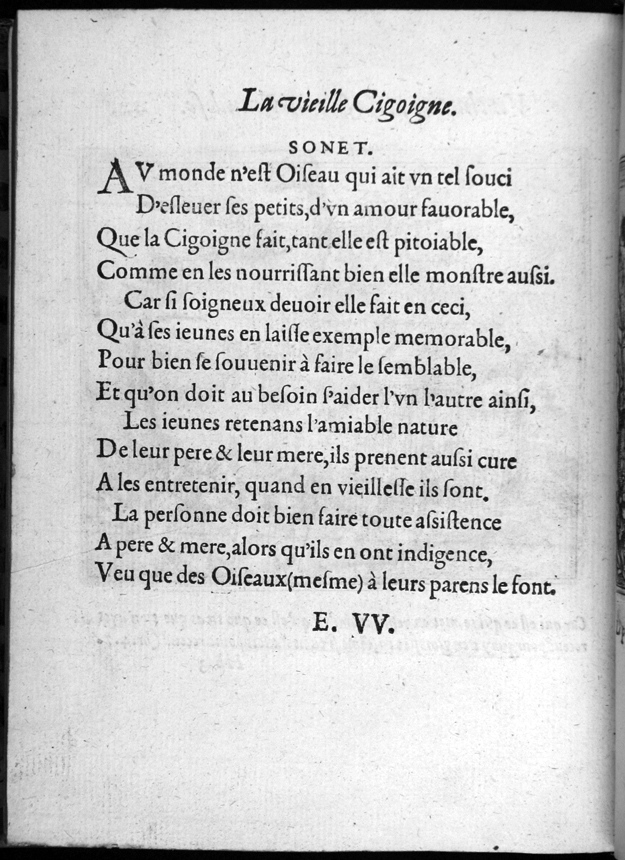 La vieille Cigoigne.
SONET.
AV monde n'eſt Oiſeau qui ait vn tel ſouci
D'eſleuer ſes petits, d'vn amour fauorable,
Que la Cigoigne fait, tant elle eſt pitoiable,
Comme en les nourriſſant bien elle monſtre auſsi.
Car ſi ſoigneux deuoir elle fait en ceci,
Qu'à ſes ieunes en laiſſe exemple memorable,
Pour bien ſe ſouuenir à faire le ſemblable,
Et qu'on doit au beſoin ſ'aider l'vn l'autre ainſi,
Les ieunes retenans l'amiable nature
De leur pere & leur mere, ils prenent auſsi cure
A les entretenir, quand en vieilleſſe ils ſont.
La perſonne doit bien faire toute aſsiſtence
A pere & mere, alors qu'ils en ont indigence,
Veu que des Oiſeaux (meſme) à leurs parens le font.
E. VV.